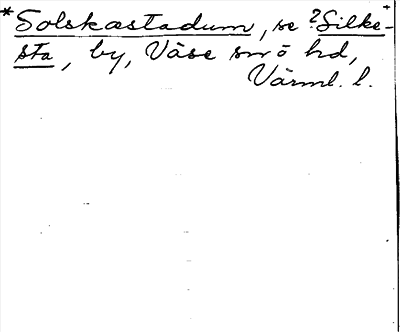 *Solskastadum, se ?Silke-
sta, by, Väse sn o hd,
Värml. l.